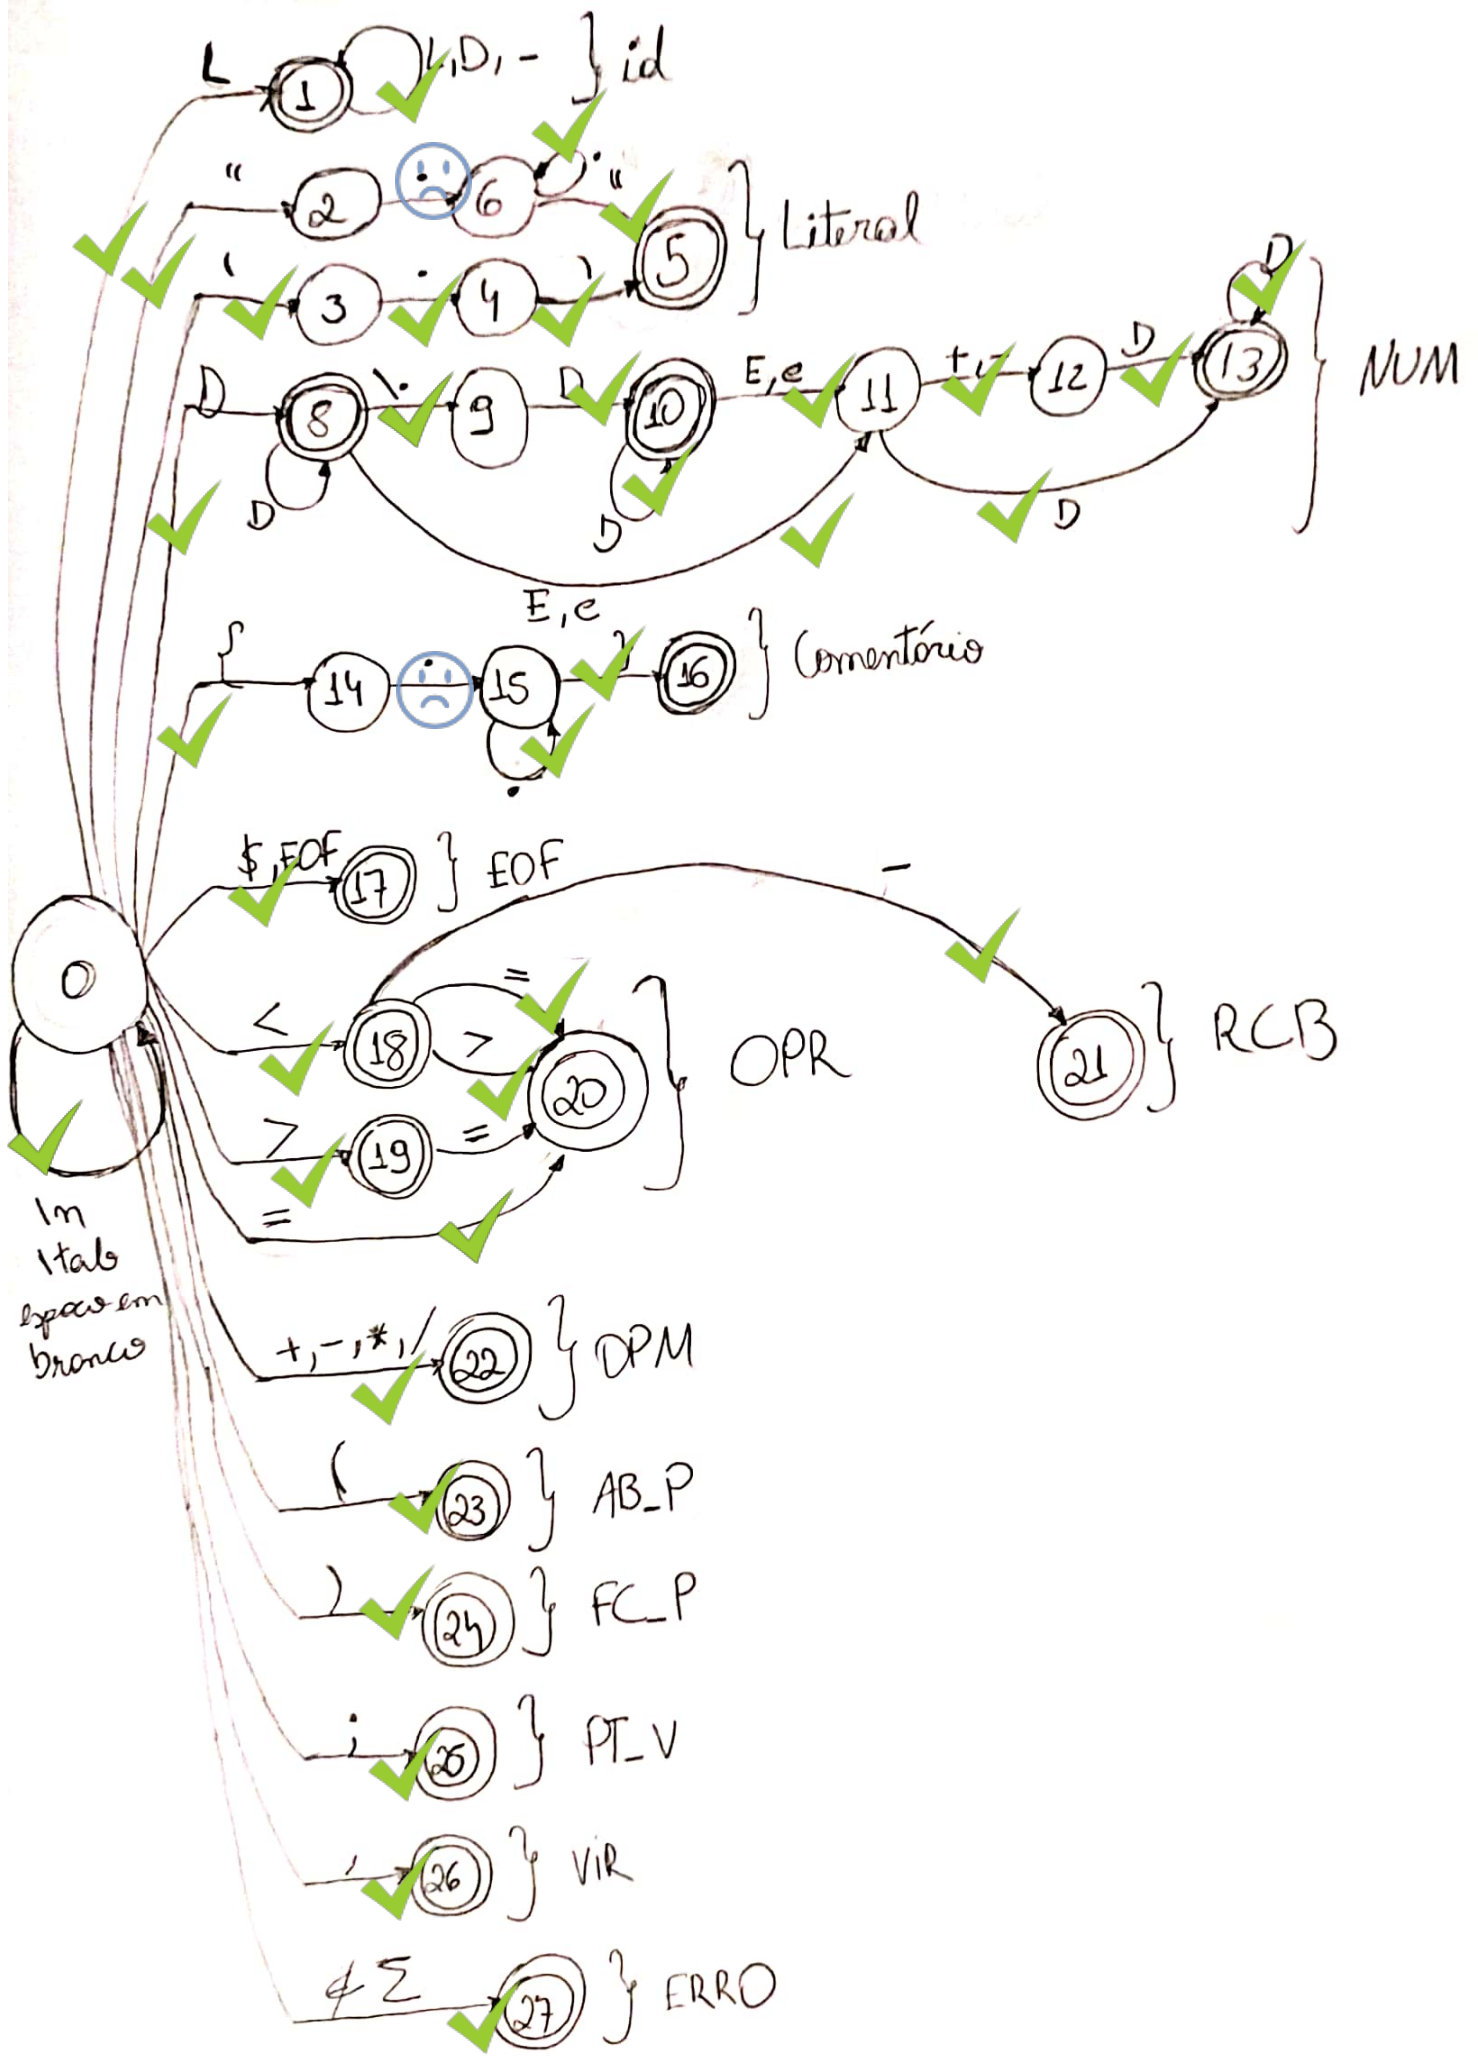 L
1
L,D,-
} id
"
2
.
6
.
"
5
} Literal
'
3
.
4
'
D
8
\.
9
D
10
E,e
11
+,-
12
D
13
D
} NUM
D
D
D
E,e
{
14
.
15
}
16
} Comentário
.
$,EOF
17
} EOF
-
0
<
18
=
>
20
} OPR
21
} RCB
>
19
=
=
\n
\tab
espaço em
branco
+,-,*,/
22
} OPM
(
23
} AB_P
)
24
} FC_P
;
25
} PT_V
,
26
} VIR
∉ Σ
27
} ERRO